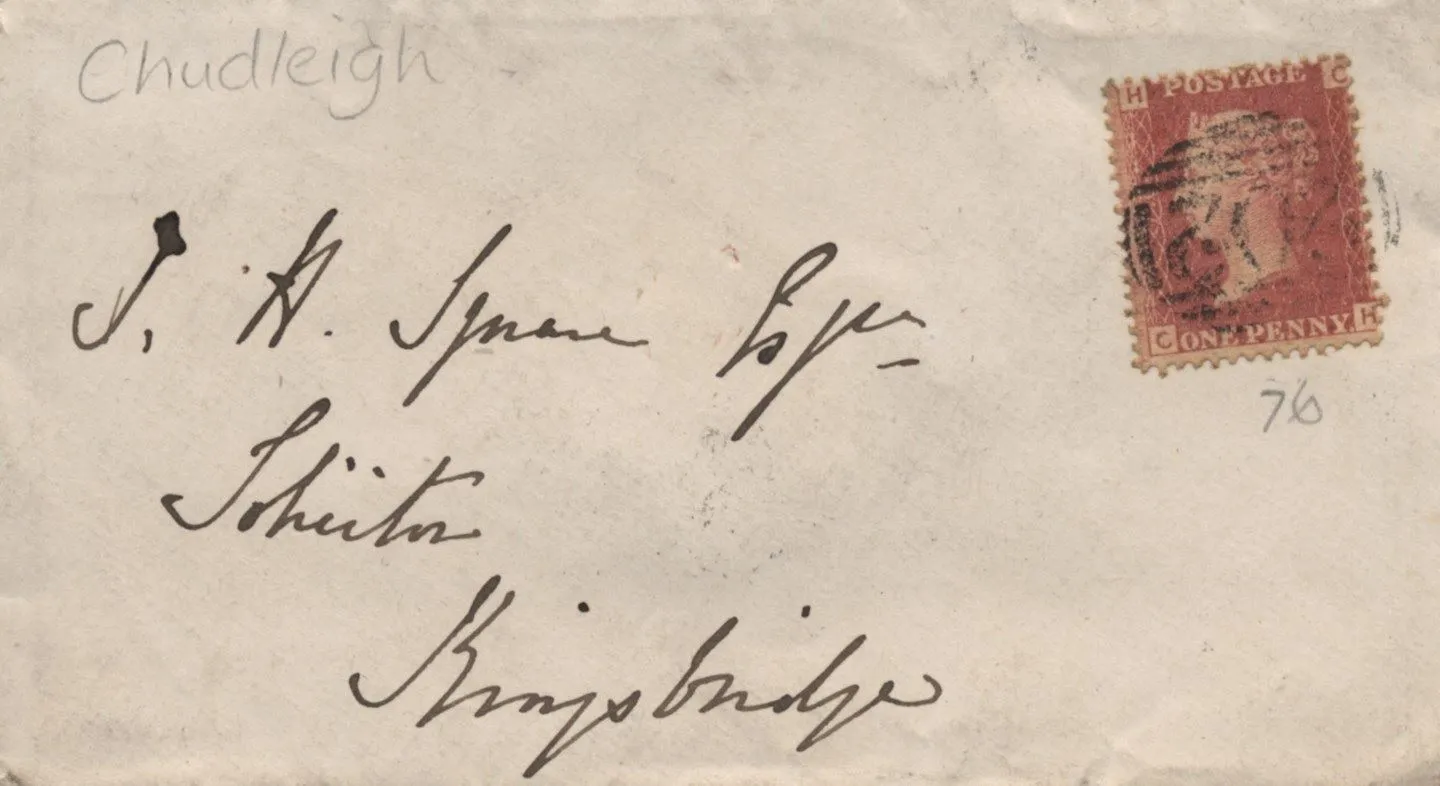 Chudleigh
H POSTAGE C
C ONE PENNY H
J. H. Square Esqre
Solicitor
Kingsbridge
76